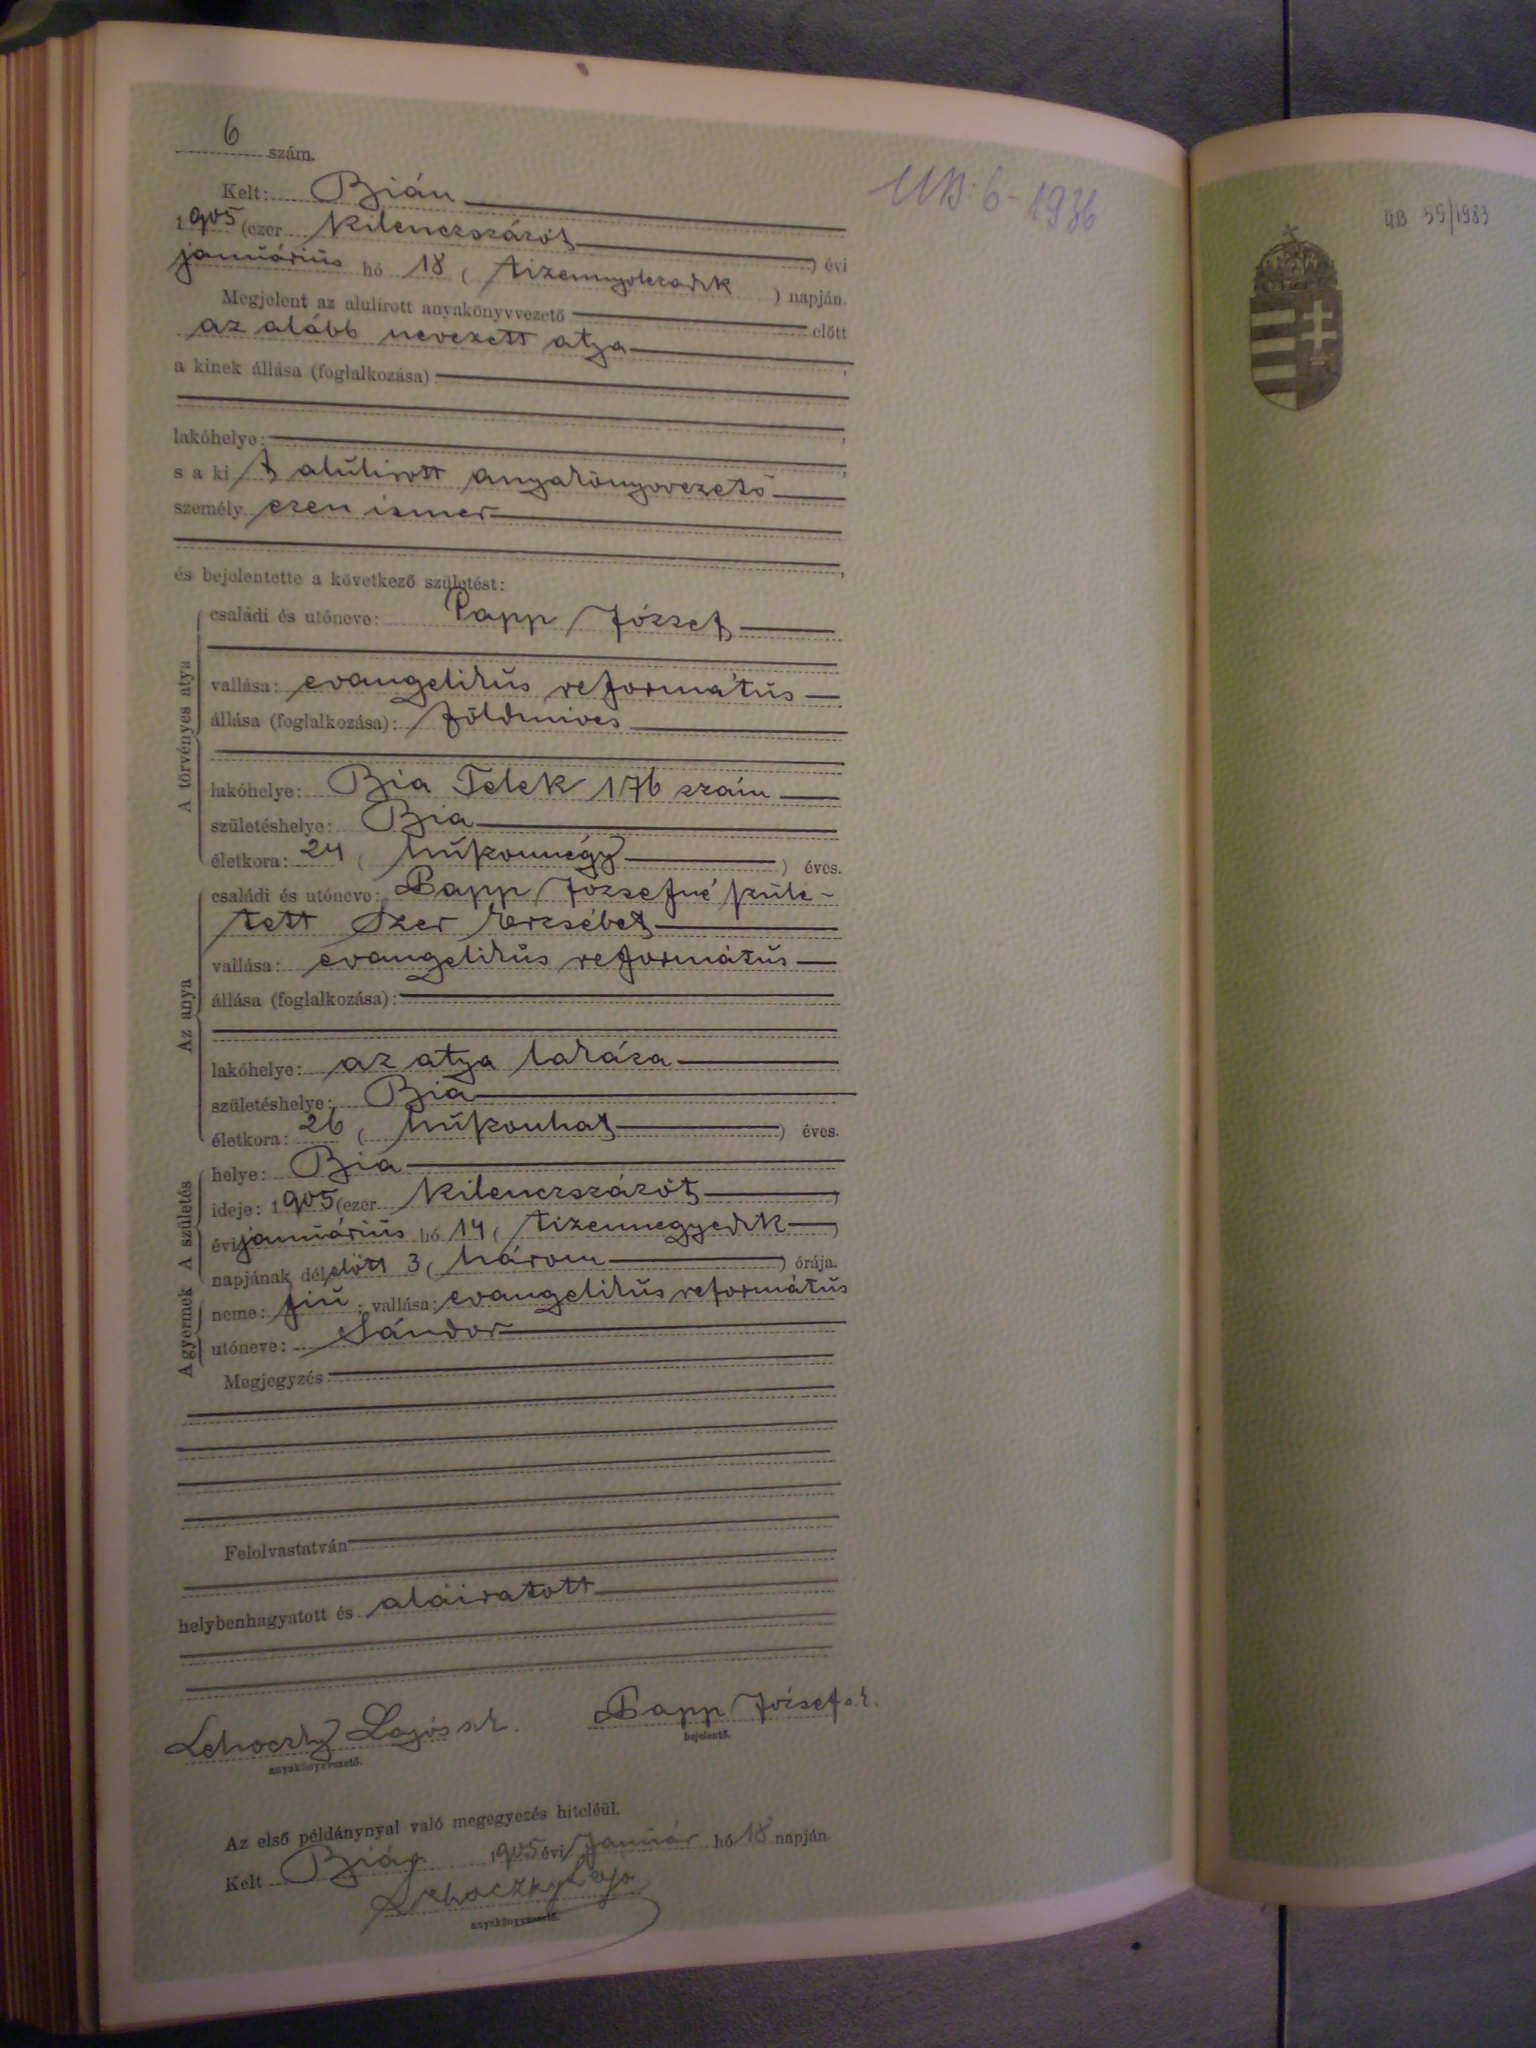 6 szám.
Kelt: Bián
1905 (ezer kilenczszázöt) évi
januáŕius hó 18 (tizennyolczadik) napján.
Megjelent az alulirott anyakönyvvezető előtt
az alább nevezett atya
a kinek állása (foglalkozása)
lakóhelye:
s a kit alulirott anyakönyvvezető
személyesen ismer
és bejelentette a következő születést:
A törvényes atya
családi és utóneve: Papp József
vallása: evangelikus református
állása (foglalkozása): földmives
lakóhelye: Bia Telek 176 szám
születéshelye: Bia
életkora: 24 (huszonnégy) éves.
Az anya
családi és utóneve: Papp Józsefné szüle-
tett Szer Erzsébet
vallása: evangelikus református
állása (foglalkozása):
lakóhelye: az atya lakása
születéshelye: Bia
életkora: 26 (huszonhat) éves.
A születés
helye: Bia
ideje: 1905 (ezer kilenczszázöt)
évi januáŕius hó 14 (tizennegyedik)
napjának délelőtt 3 (három) órája.
A gyermek
neme: fiú; vallása: evangelikus református
utóneve: Sándor
Megjegyzés
Felolvastatván
helybenhagyatott és aláiratott
Lehoczky Lajos sk.
anyakönyvvezető.
Papp József s.k.
bejelentő.
Az első példánynyal való megegyezés hiteléül.
Kelt Bián 1905 évi január hó 18 napján.
Lehoczky Lajos
anyakönyvvezető.
UB: 6-1936
UB 55/1983